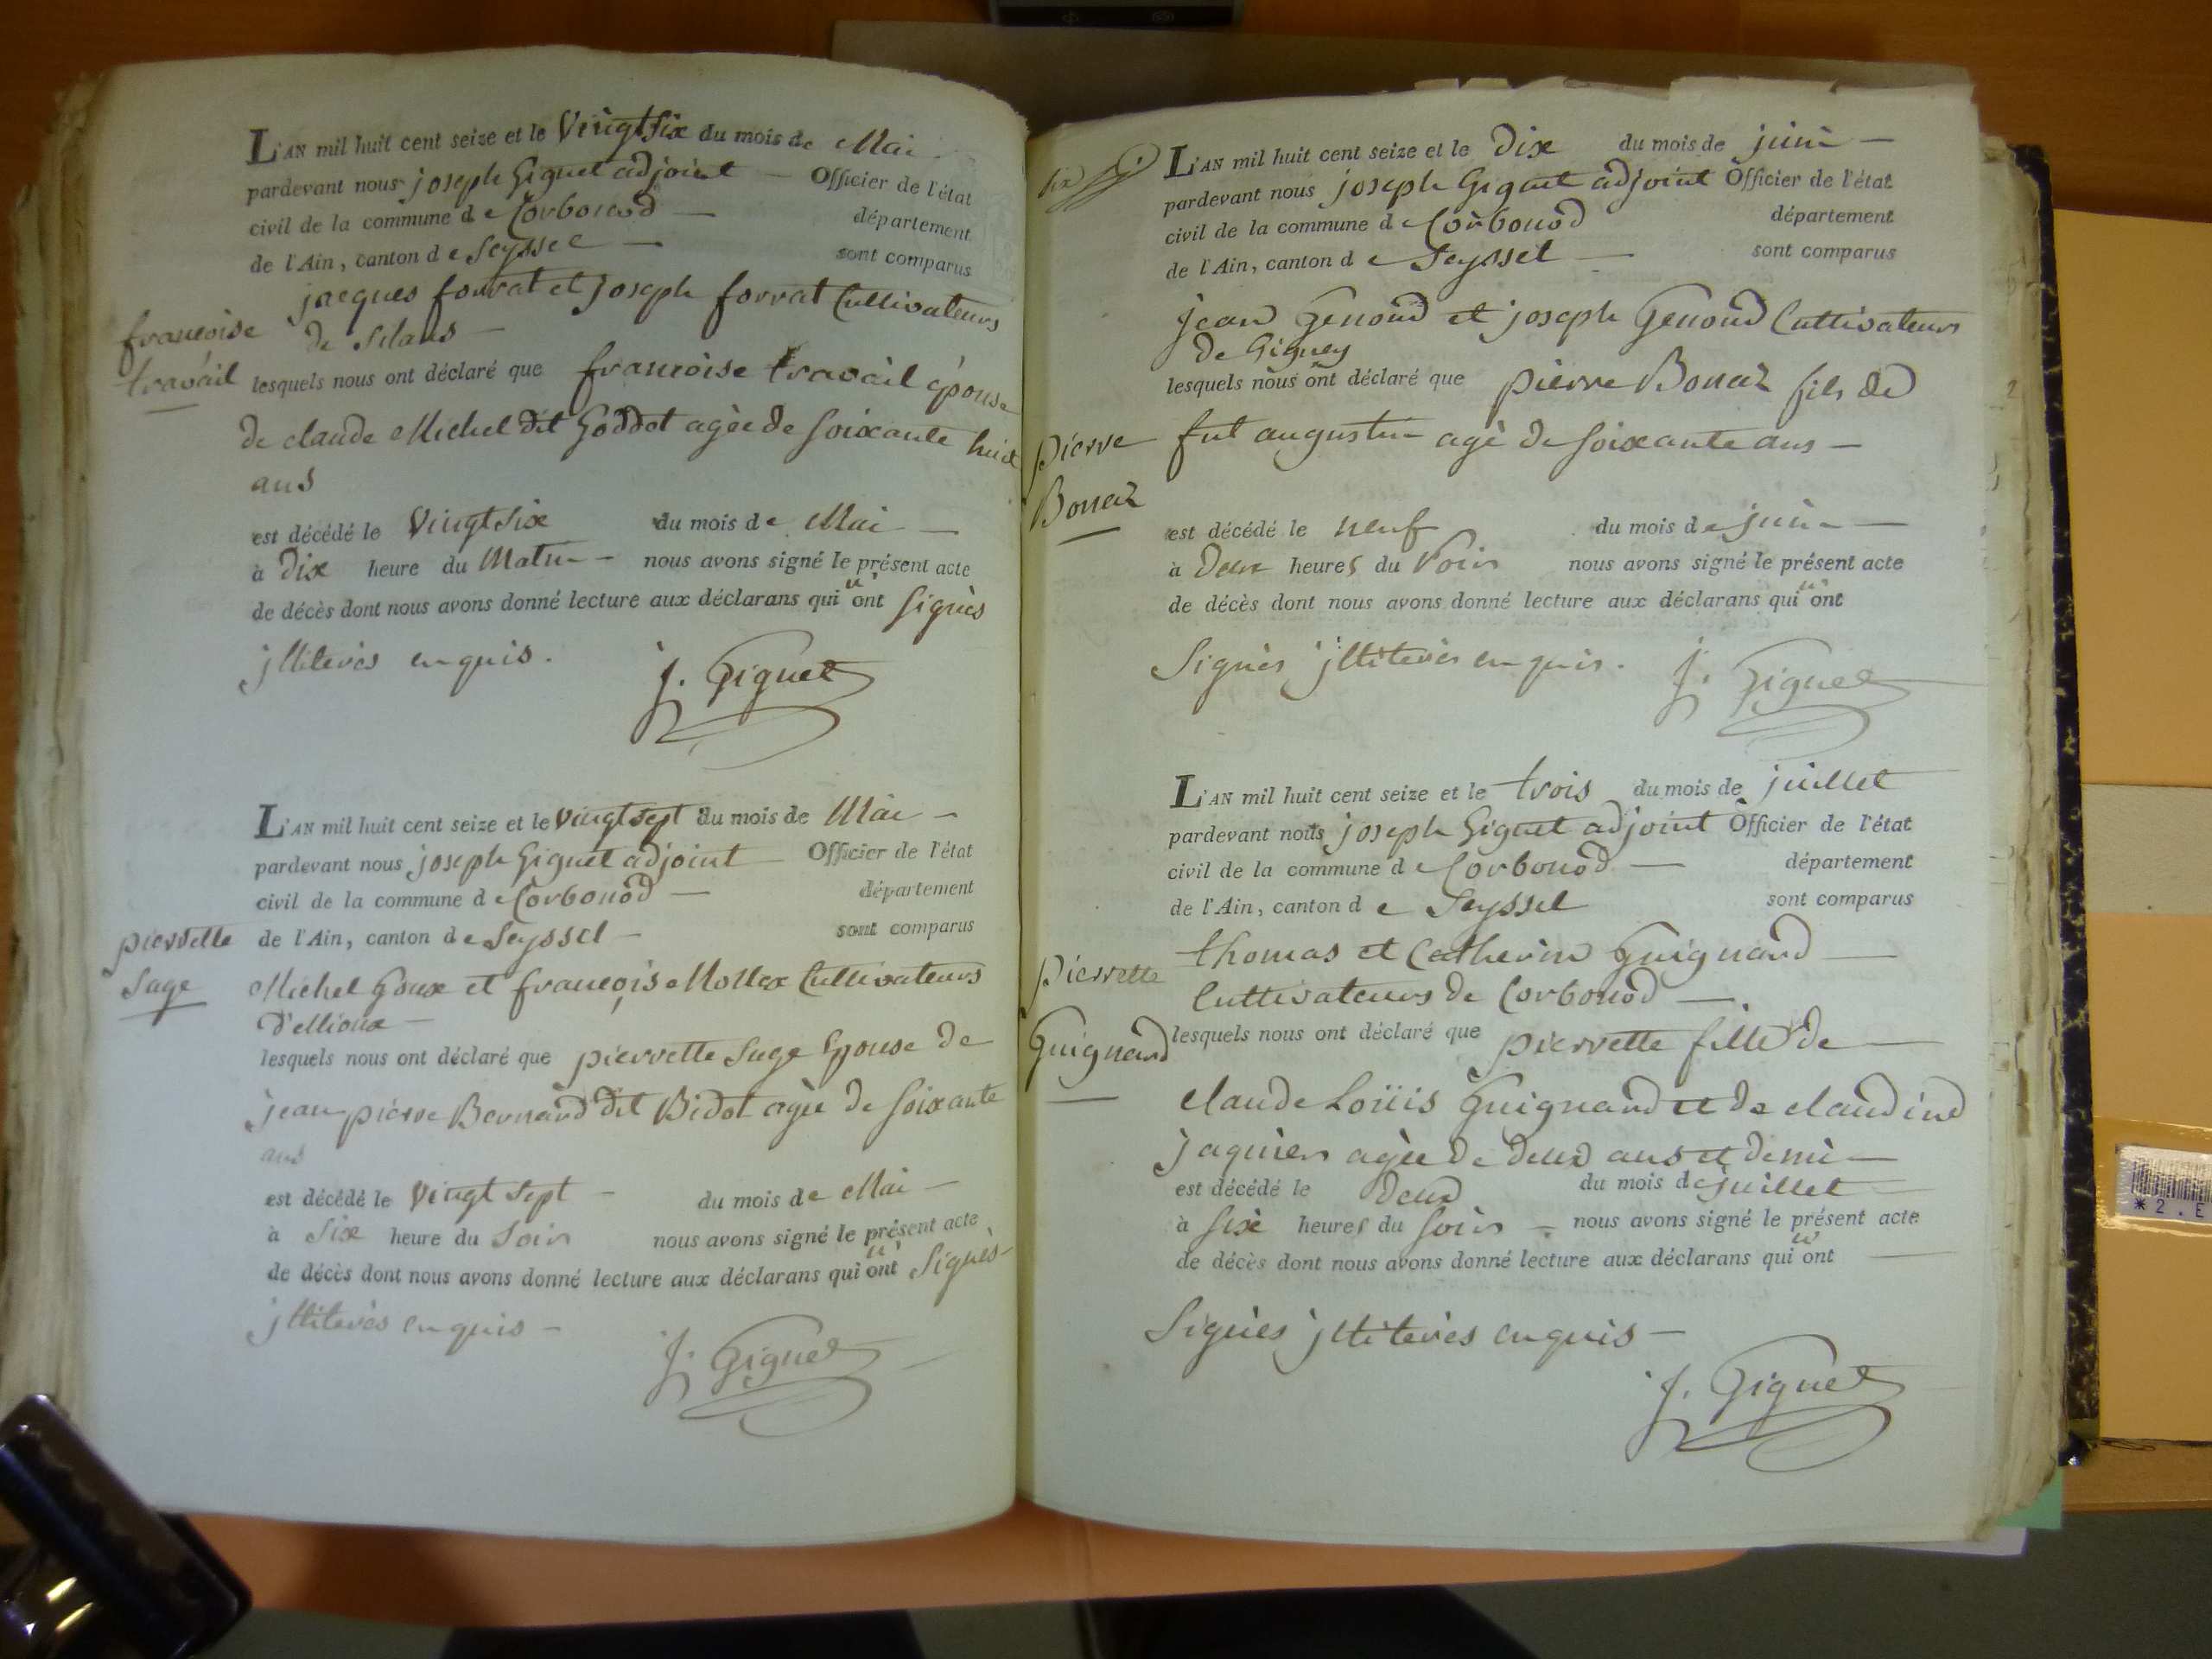 L'AN mil huit cent seize et le Vingt six du mois de Mai
pardevant nous joseph Giguet adjoint — Officier de l'état
civil de la commune de Corbonod — département
de l'Ain, canton de Seyssel — sont comparus
jacques forrat et joseph forrat Cultivateurs
de Silans —
françoise
travail
lesquels nous ont déclaré que françoise travail épouse
de claude Michel dit Goddet agée de soixante huit
ans
est décédé le Vingt six du mois de Mai —
à dix heure du Matin — nous avons signé le présent acte
de décès dont nous avons donné lecture aux déclarans qui n'ont signés
jlliterés enquis.
J. Giguet
L'AN mil huit cent seize et le vingt sept du mois de Mai —
pardevant nous joseph Giguet adjoint — Officier de l'état
civil de la commune de Corbonod — département
pierrette
Sage
de l'Ain, canton de Seyssel — sont comparus
Michel Goux et françois Mollex Cultivateurs
d'Etlioux —
lesquels nous ont déclaré que pierrette Sage Epouse de
jean pierre Bernard dit Bidot agée de soixante
ans
est décédé le vingt sept — du mois de Mai —
à Six heure du Soir nous avons signé le présent acte
de décès dont nous avons donné lecture aux déclarans qui n'ont signés
jlliterés enquis —
J. Giguet
six
L'AN mil huit cent seize et le Dix du mois de juin —
pardevant nous joseph Giguet adjoint Officier de l'état
civil de la commune de Corbonod département
de l'Ain, canton de Seyssel — sont comparus
jean Genoud et joseph Genoud Cultivateurs
de Gigney
lesquels nous ont déclaré que pierre Bonaz fils de
pierre
Bonaz
fut augustin agé de soixante ans —
est décédé le neuf du mois de juin —
à Deux heures du soir nous avons signé le présent acte
de décès dont nous avons donné lecture aux déclarans qui n'ont
Signés jlliterés enquis.
J. Giguet
L'AN mil huit cent seize et le trois du mois de juillet
pardevant nous joseph Giguet adjoint Officier de l'état
civil de la commune de Corbonod — département
de l'Ain, canton de Seyssel sont comparus
thomas et Catherin Guignard —
Cultivateurs de Corbonod —
pierrette
Guignard
lesquels nous ont déclaré que pierrette fille de —
claude Loüis Guignard et de claudine
jaquier agée de deux ans et demi —
est décédé le deux du mois de juillet
à six heures du soir — nous avons signé le présent acte
de décès dont nous avons donné lecture aux déclarans qui n'ont —
Signés jlliterés enquis —
J. Giguet
*2.E